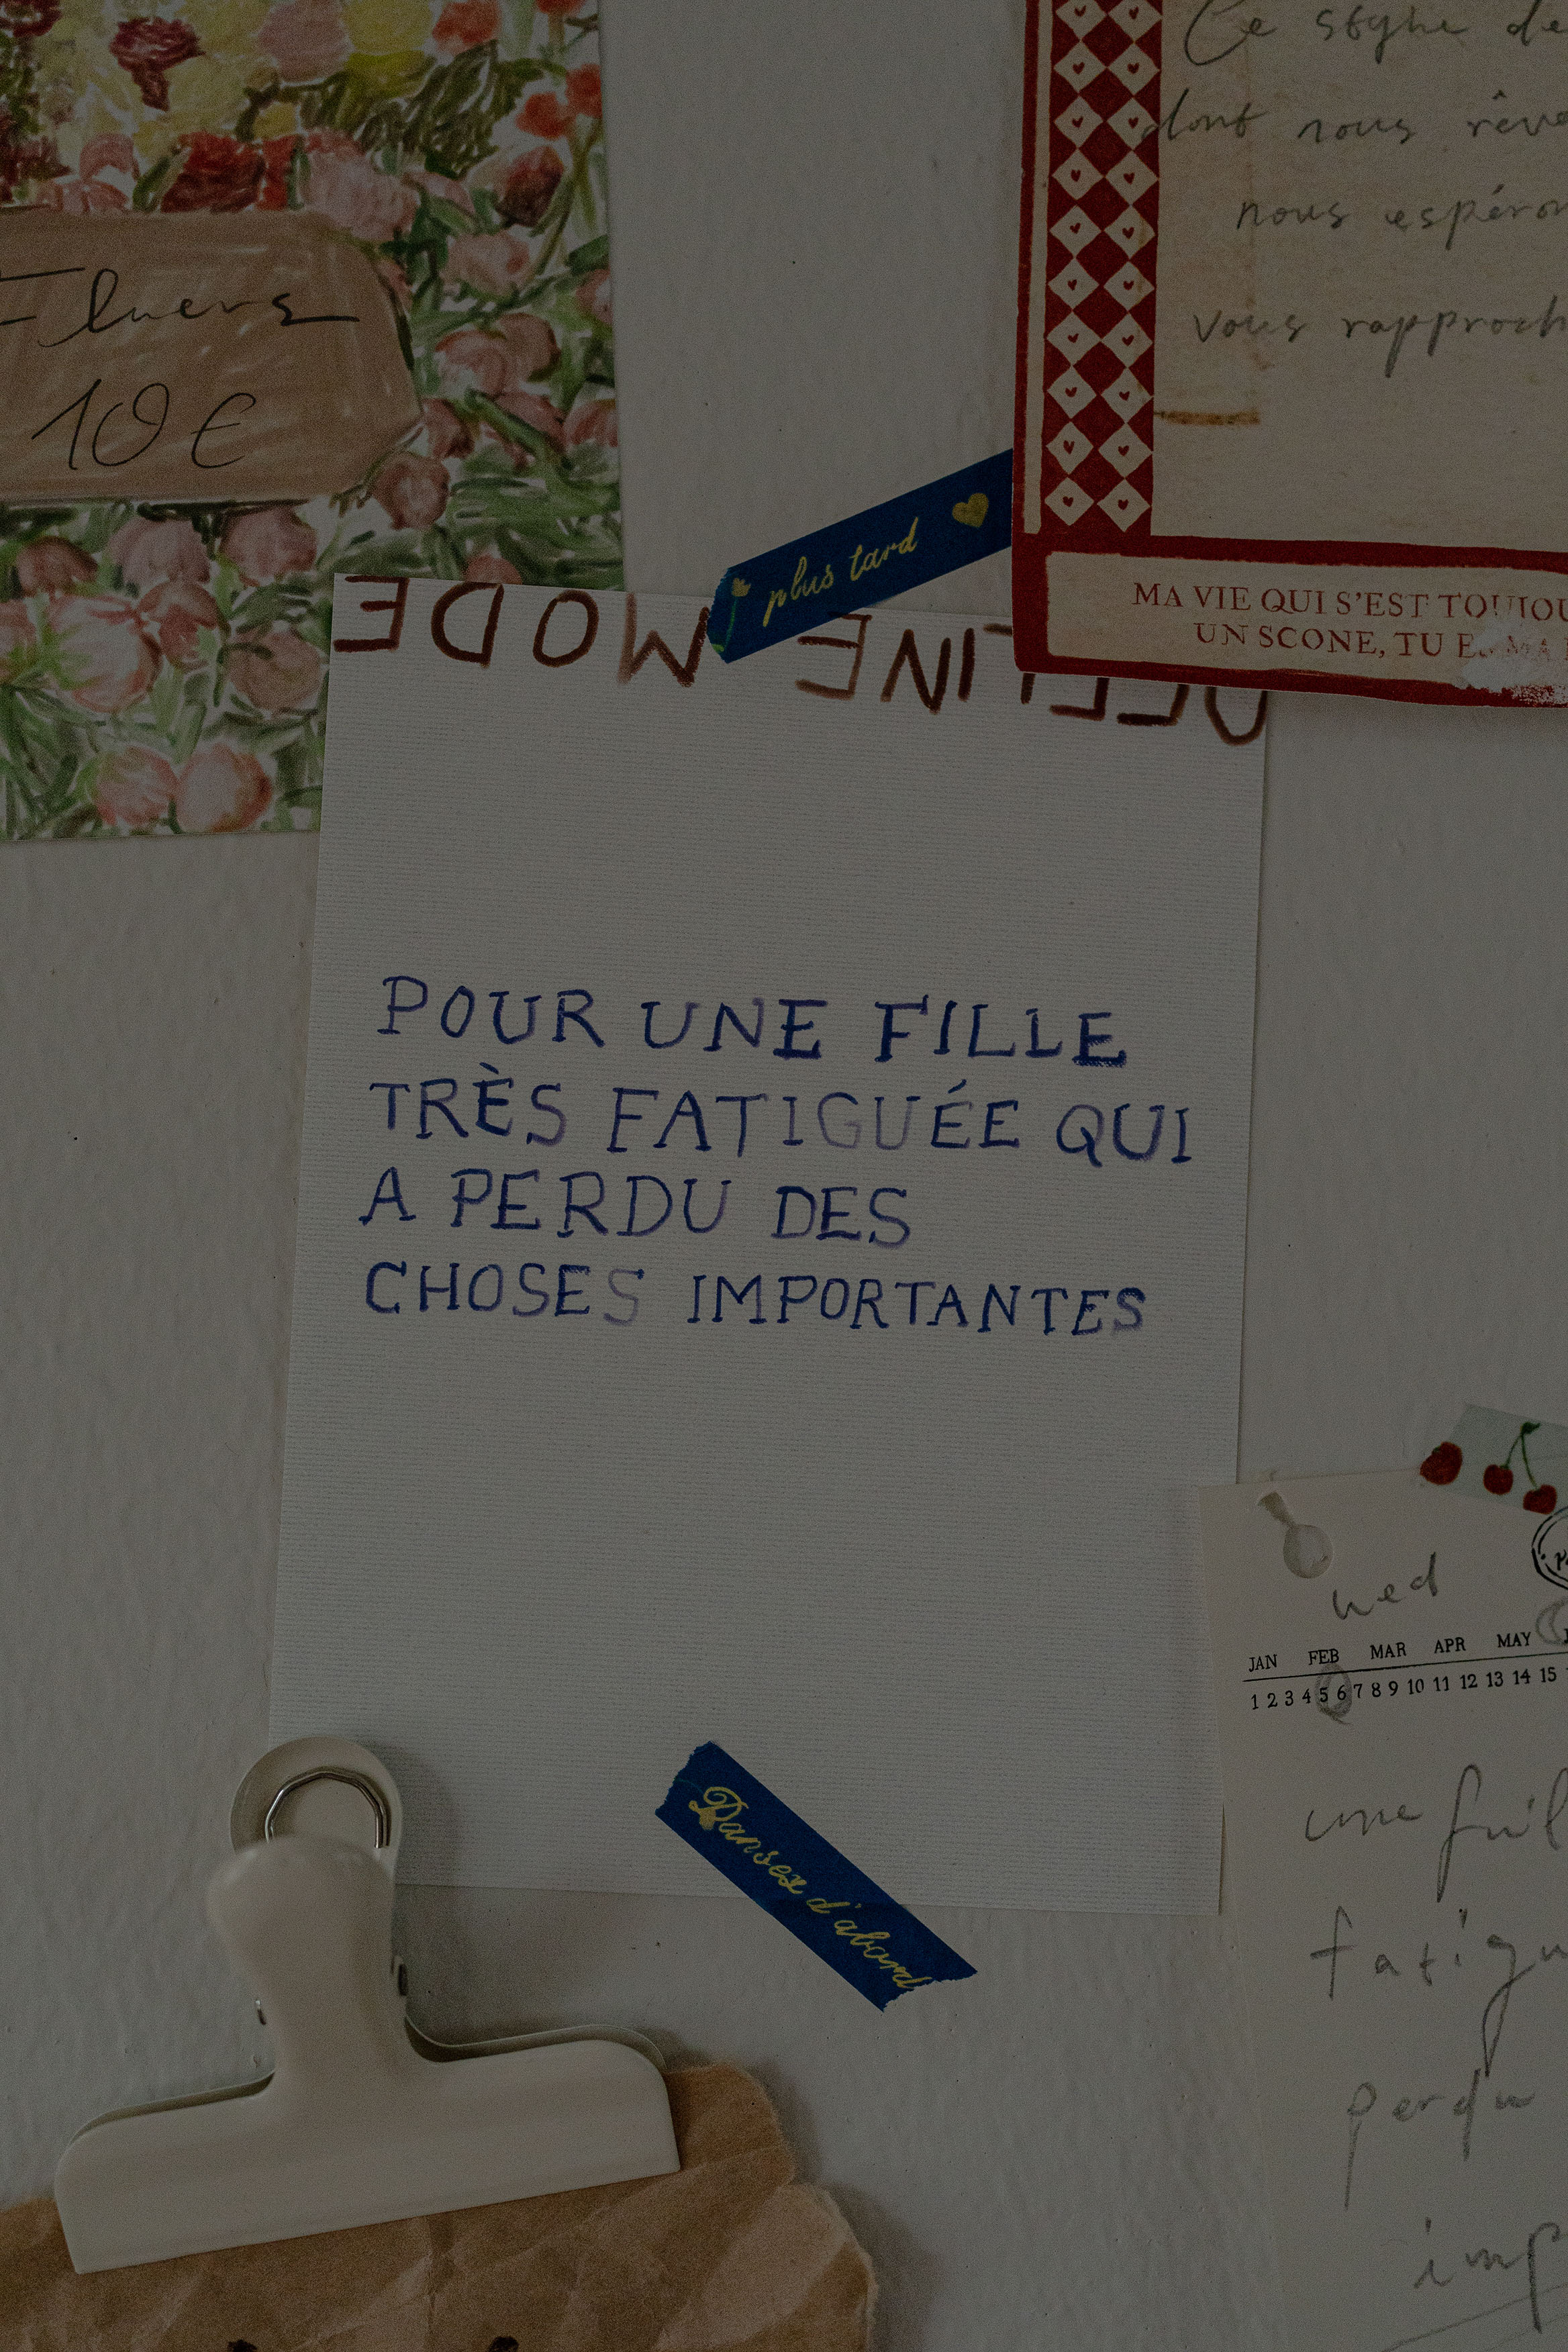 Ce style de
dont nous rêv
nous espéron
vous rapproch
10 €
plus tard
OFFLINE MODE
MA VIE QUI S'EST TOUJOU
UN SCONE, TU ES MA
POUR UNE FILLE
TRÈS FATIGUÉE QUI
A PERDU DES
CHOSES IMPORTANTES
wed
JAN FEB MAR APR MAY
1 2 3 4 5 6 7 8 9 10 11 12 13 14 15
une
fatigu
perdu
imp
Danses d'abord